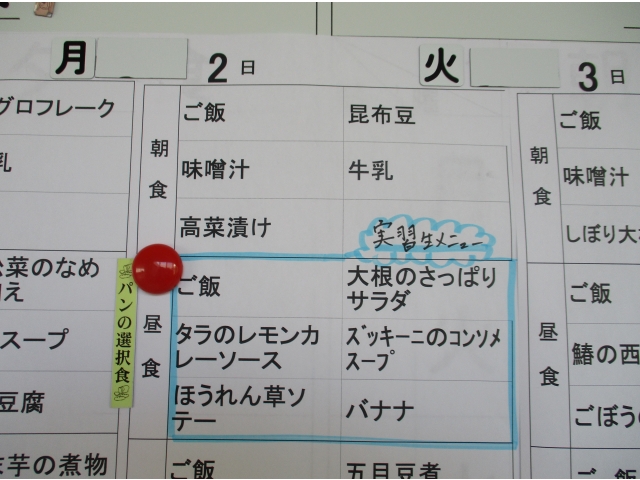 月 2日 火 3日
グロフレーク
乳
松菜のなめ
スープ
豆腐
芋の煮物
パンの選択食
朝食
ご飯 昆布豆
味噌汁 牛乳
高菜漬け
実習生メニュー
昼食
ご飯
大根のさっぱり
サラダ
タラのレモンカ
レーソース
ズッキーニのコンソメ
スープ
ほうれん草ソ
テー
バナナ
ご飯 五目豆煮
朝食
ご飯
味噌汁
しぼり大
昼食
ご飯
鰆の西
ごぼう